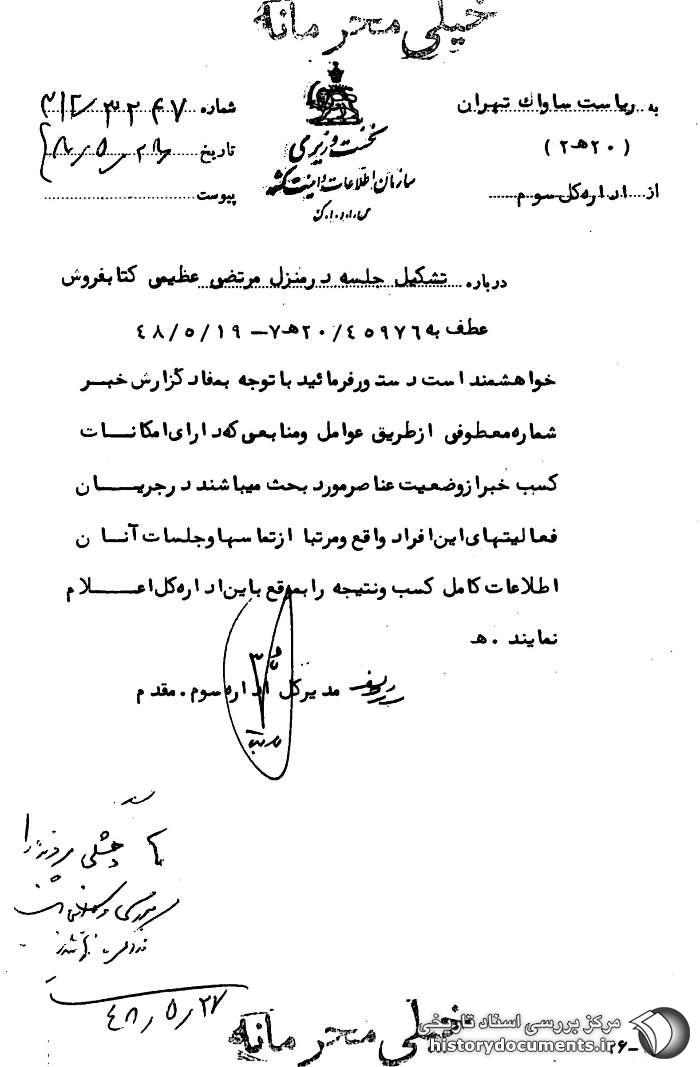 خیلی محرمانه
به ریاست ساواك تهران
(۲۰هـ۲)
از اداره کل سوم
نخست وزیری
سازمان اطلاعات و امنیت کشور
س.ا.و.ا.ک
شماره ۳۱۲/۳۲۴۷
تاریخ ۴۸/۵/۲۸
پیوست
درباره تشکیل جلسه در منزل مرتضی عظیمی کتابفروش
عطف به ۲۰/۴۵۹۷۶هـ۷ – ۴۸/۵/۱۹
خواهشمند است دستور فرمائید با توجه بمفاد گزارش خبر
شماره معطوفی از طریق عوامل و منابعی که دارای امکانات
کسب خبر از وضعیت عناصر مورد بحث میباشند در جریان
فعالیتهای این افراد واقع و مرتبا از تماسها و جلسات آنان
اطلاعات کامل کسب و نتیجه را بموقع باین اداره کل اعلام
نمایند . هـ
مدیر کل اداره سوم . مقدم
۴۸/۵/۲۷
خیلی محرمانه
مرکز بررسی اسناد تاریخی
historydocuments.ir